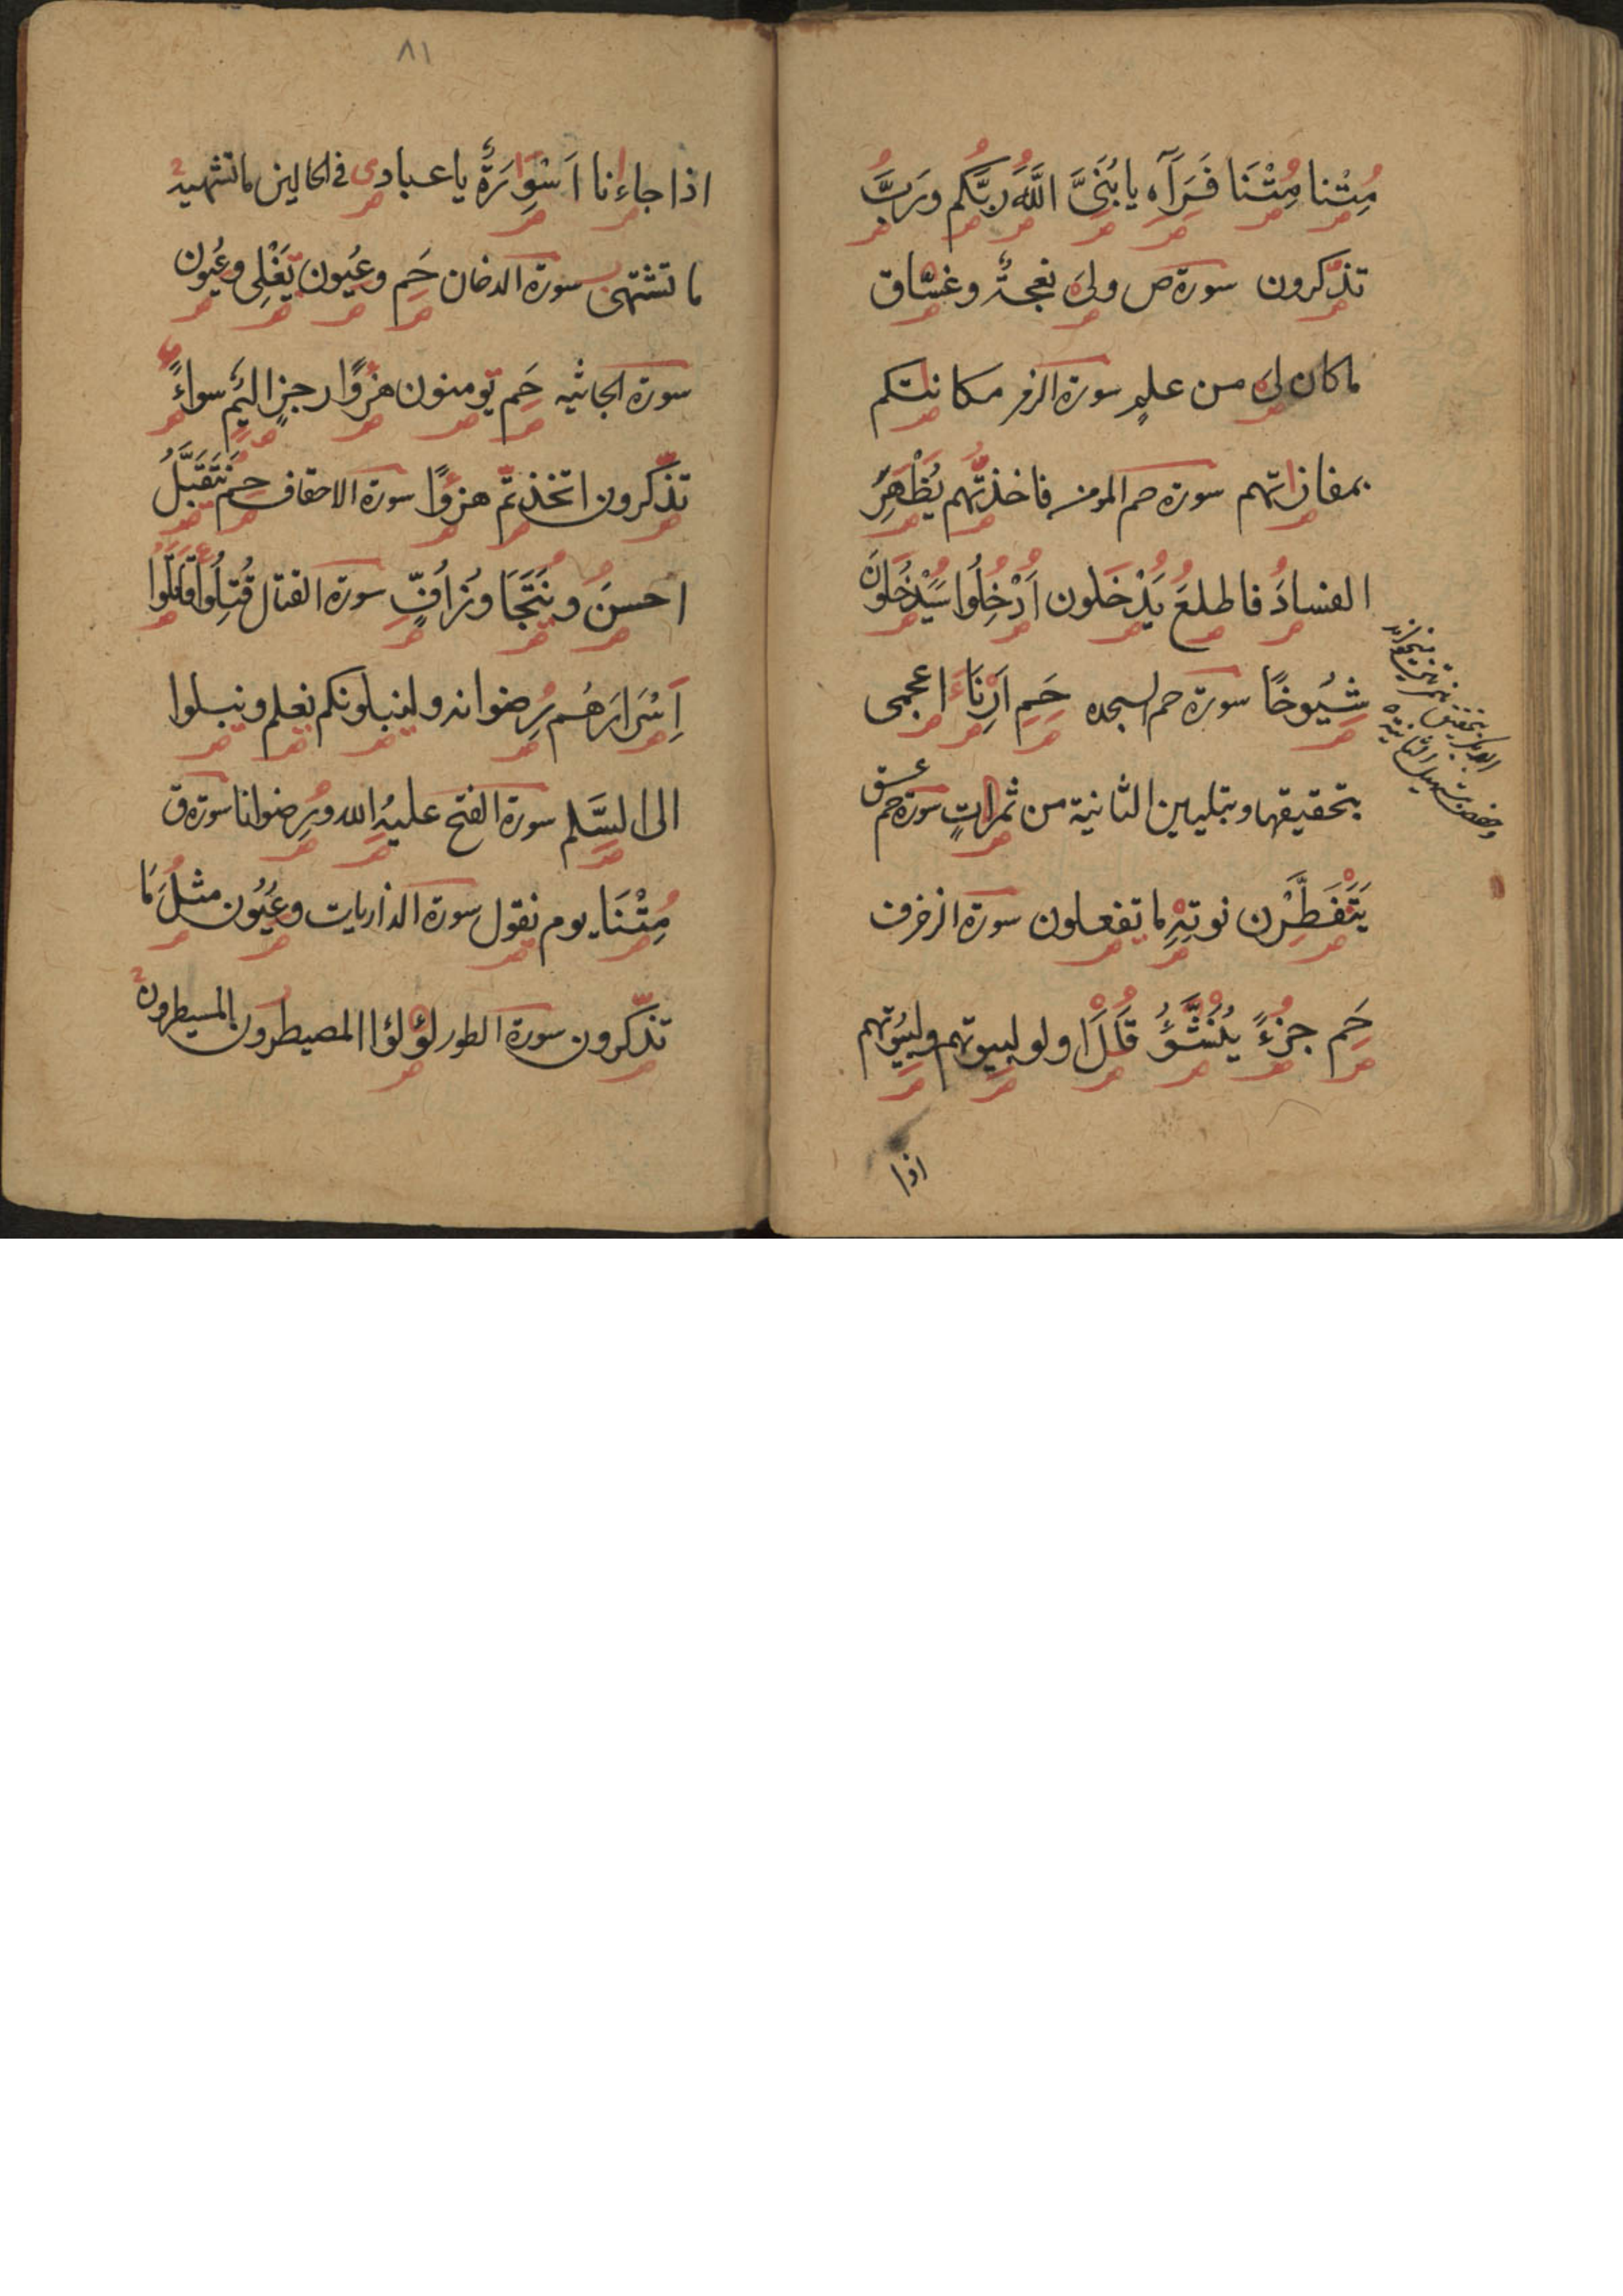 مِتْنا مِتْنَا فَرَآه يا بُنَىَّ اللَّهَ ربَّكم ورَبَّ
تذّكرون سورة ص ولى نعجةٌ وغسّاق
ما كان لى من علمٍ سورة الزمر مكانتكم
بمفازاتهم سورة حم المومن فاخذتّهم يُظْهِرَ
الفسادُ فاطلعُ يَدْخلون اَدْخِلُوا سَيَدْخُلُونَ
شِيُوخًا سورة حم السجده حَمِ اَرِنَا ءَاعجمى
بتحقيقها وبتليين الثانية من ثمراتٍ سورة حم عسق
يَتَفَطَّرْن نوتِهِ ما تفعلون سورة الزخرف
حَمِ جزءً يُنَشَّؤُ قَالَ اولو لبيوتهم ولبِيُوتهم
اذا
٨١
اذا جاءانا اَسْوِرَةٌ يا عبادى فى الحالين ما تشتهيه
ما تشتهى سورة الدخان حَمِ وعِيُون تَغْلِى وعِيُون
سورة الجاثيه حَمِ تومنون هزُوًا رجزٍ اليمٍ سواءً
تذّكرون اتخذتّم هزوًا سورة الاحقاف حم نَتَقَبَّلُ
احسنَ ونَتَجَاوَزُ اُفٍّ سورة القتال قُتِلُوا قَاتَلُوا
اِسْرَارَهُم رِضوانه ولنبلونكم نعلم ونبلوا
الى السَّلم سورة الفتح عليهُ الله ورِضوانا سورة ق
مِتْنَا يوم نقول سورة الذاريات وعِيُون مثلَ مَا
تذّكرون سورة الطور لؤلؤا المصيطرون المسيطرون